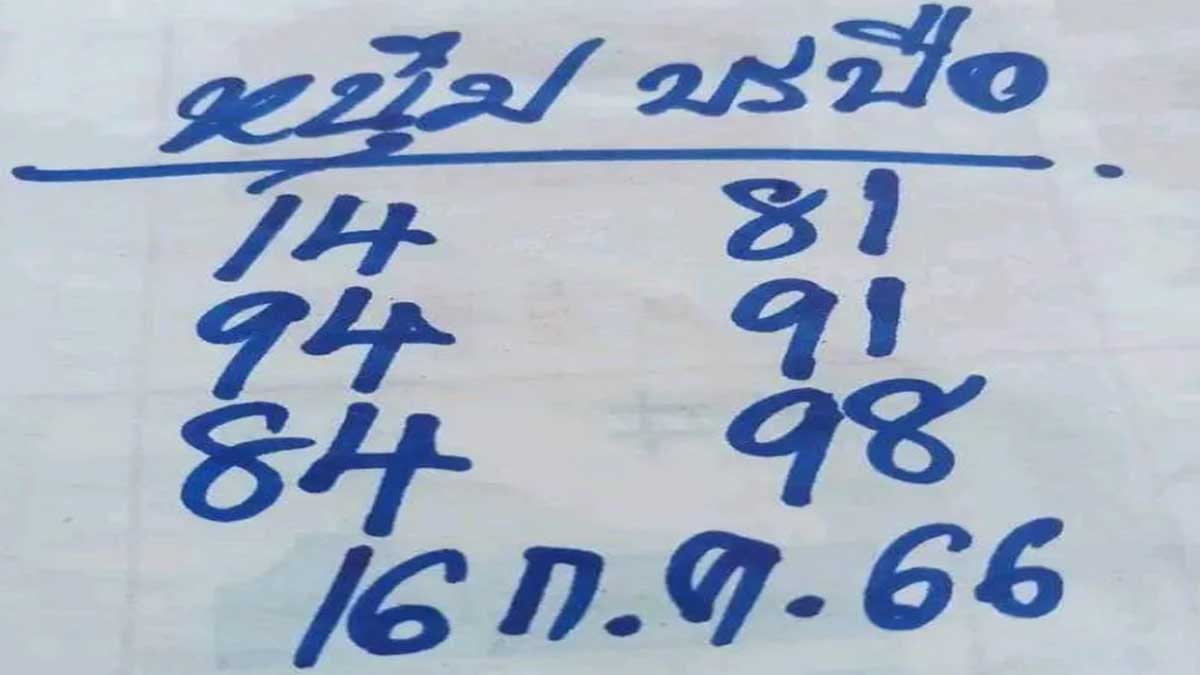 บรบือ.
14 81
94 91
84 98
16 ก.ค. 66